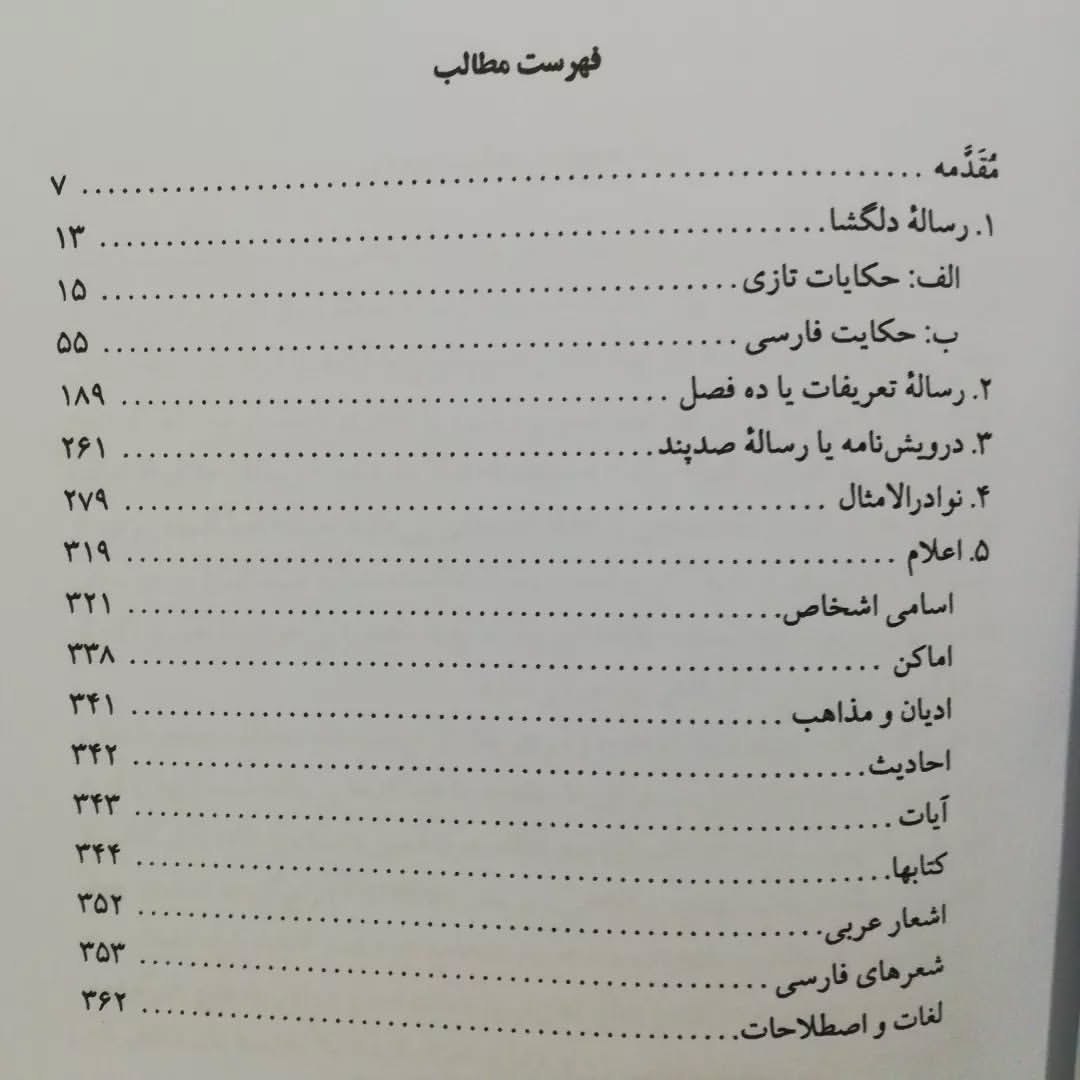 فهرست مطالب
مُقَدَّمه ........ ۷
۱. رسالهٔ دلگشا ........ ۱۳
الف: حکایات تازی ........ ۱۵
ب: حکایت فارسی ........ ۵۵
۲. رسالهٔ تعریفات یا ده فصل ........ ۱۸۹
۳. درویش‌نامه یا رسالهٔ صدپند ........ ۲۶۱
۴. نوادرالامثال ........ ۲۷۹
۵. اعلام ........ ۳۱۹
اسامی اشخاص ........ ۳۲۱
اماکن ........ ۳۳۸
ادیان و مذاهب ........ ۳۴۱
احادیث ........ ۳۴۲
آیات ........ ۳۴۳
کتابها ........ ۳۴۴
اشعار عربی ........ ۳۵۲
شعرهای فارسی ........ ۳۵۳
لغات و اصطلاحات ........ ۳۶۲